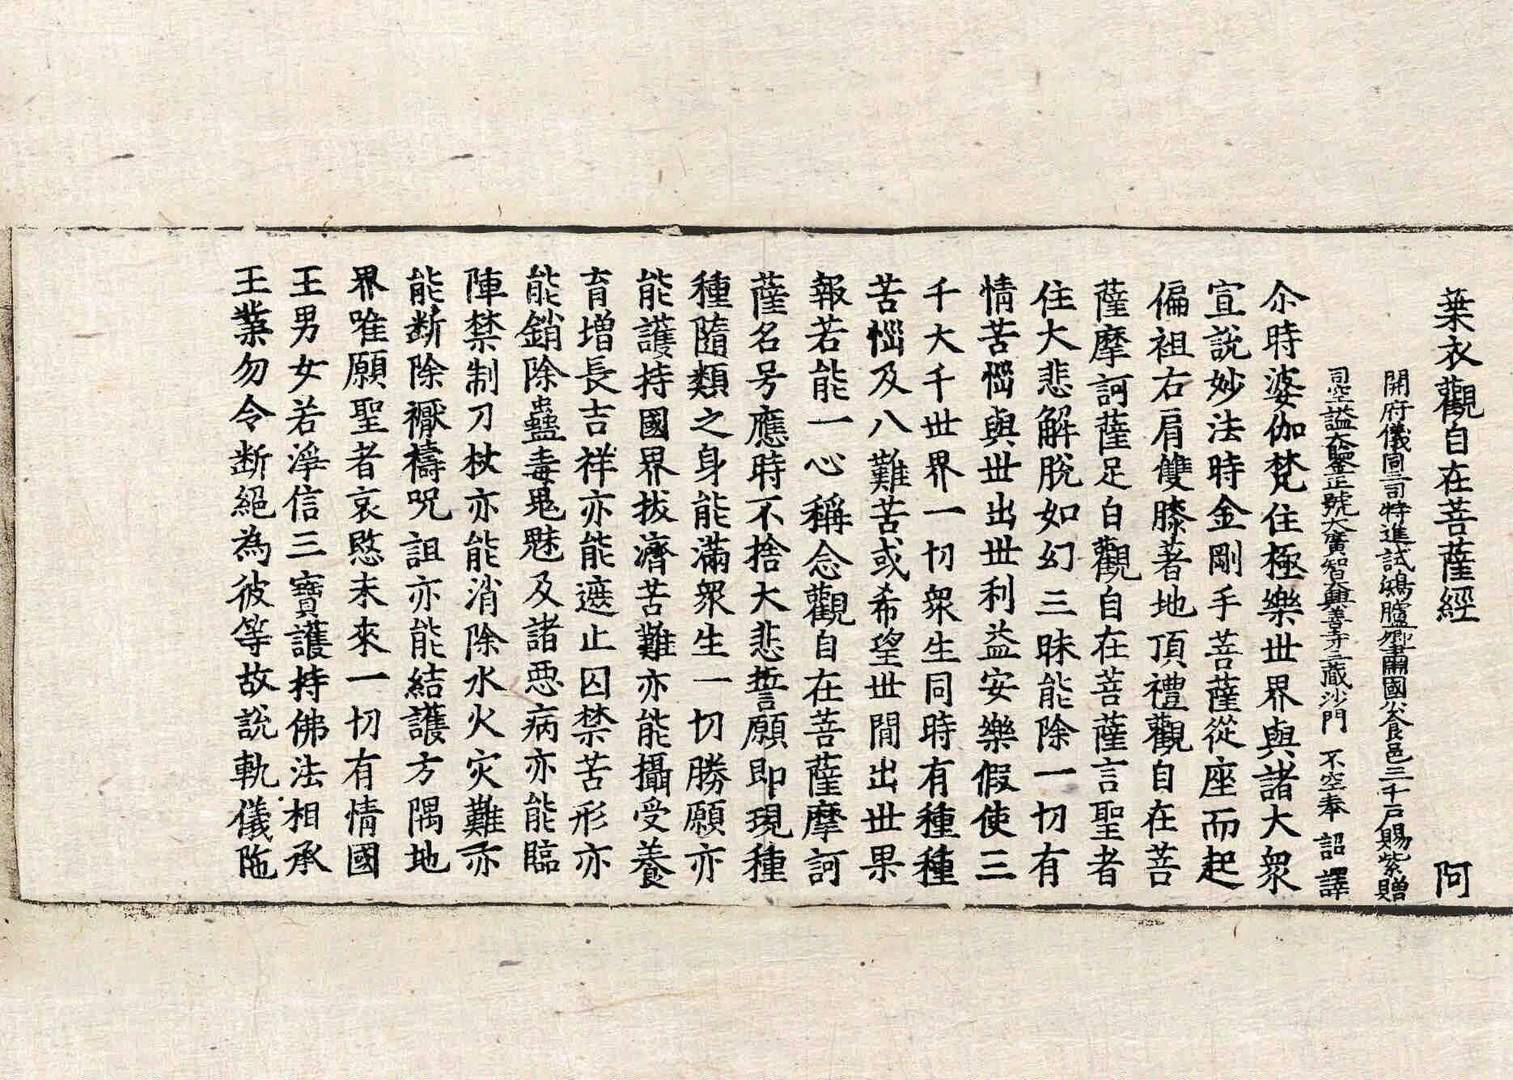 葉衣觀自在菩薩經 阿
開府儀同三司特進試鴻臚卿肅國公食邑三千戶賜紫贈
司空謚大鑒正號大廣智大興善寺三藏沙門 不空奉 詔譯
尒時婆伽梵住極樂世界與諸大衆
宣說妙法時金剛手菩薩從座而起
偏袒右肩雙膝著地頂禮觀自在菩
薩摩訶薩足白觀自在菩薩言聖者
住大悲解脫如幻三昧能除一切有
情苦惱與世出世利益安樂假使三
千大千世界一切衆生同時有種種
苦惱及八難苦或希望世間出世果
報若能一心稱念觀自在菩薩摩訶
薩名号應時不捨大悲誓願即現種
種隨類之身能滿衆生一切勝願亦
能護持國界拔濟苦難亦能攝受養
育增長吉祥亦能遮止囚禁苦形亦
能銷除蠱毒鬼魅及諸惡病亦能臨
陣禁制刀杖亦能消除水火灾難亦
能断除禳禱呪詛亦能結護方隅地
界唯願聖者哀愍未來一切有情國
王男女若淨信三寶護持佛法相承
王業勿令断絕為彼等故說軌儀陁